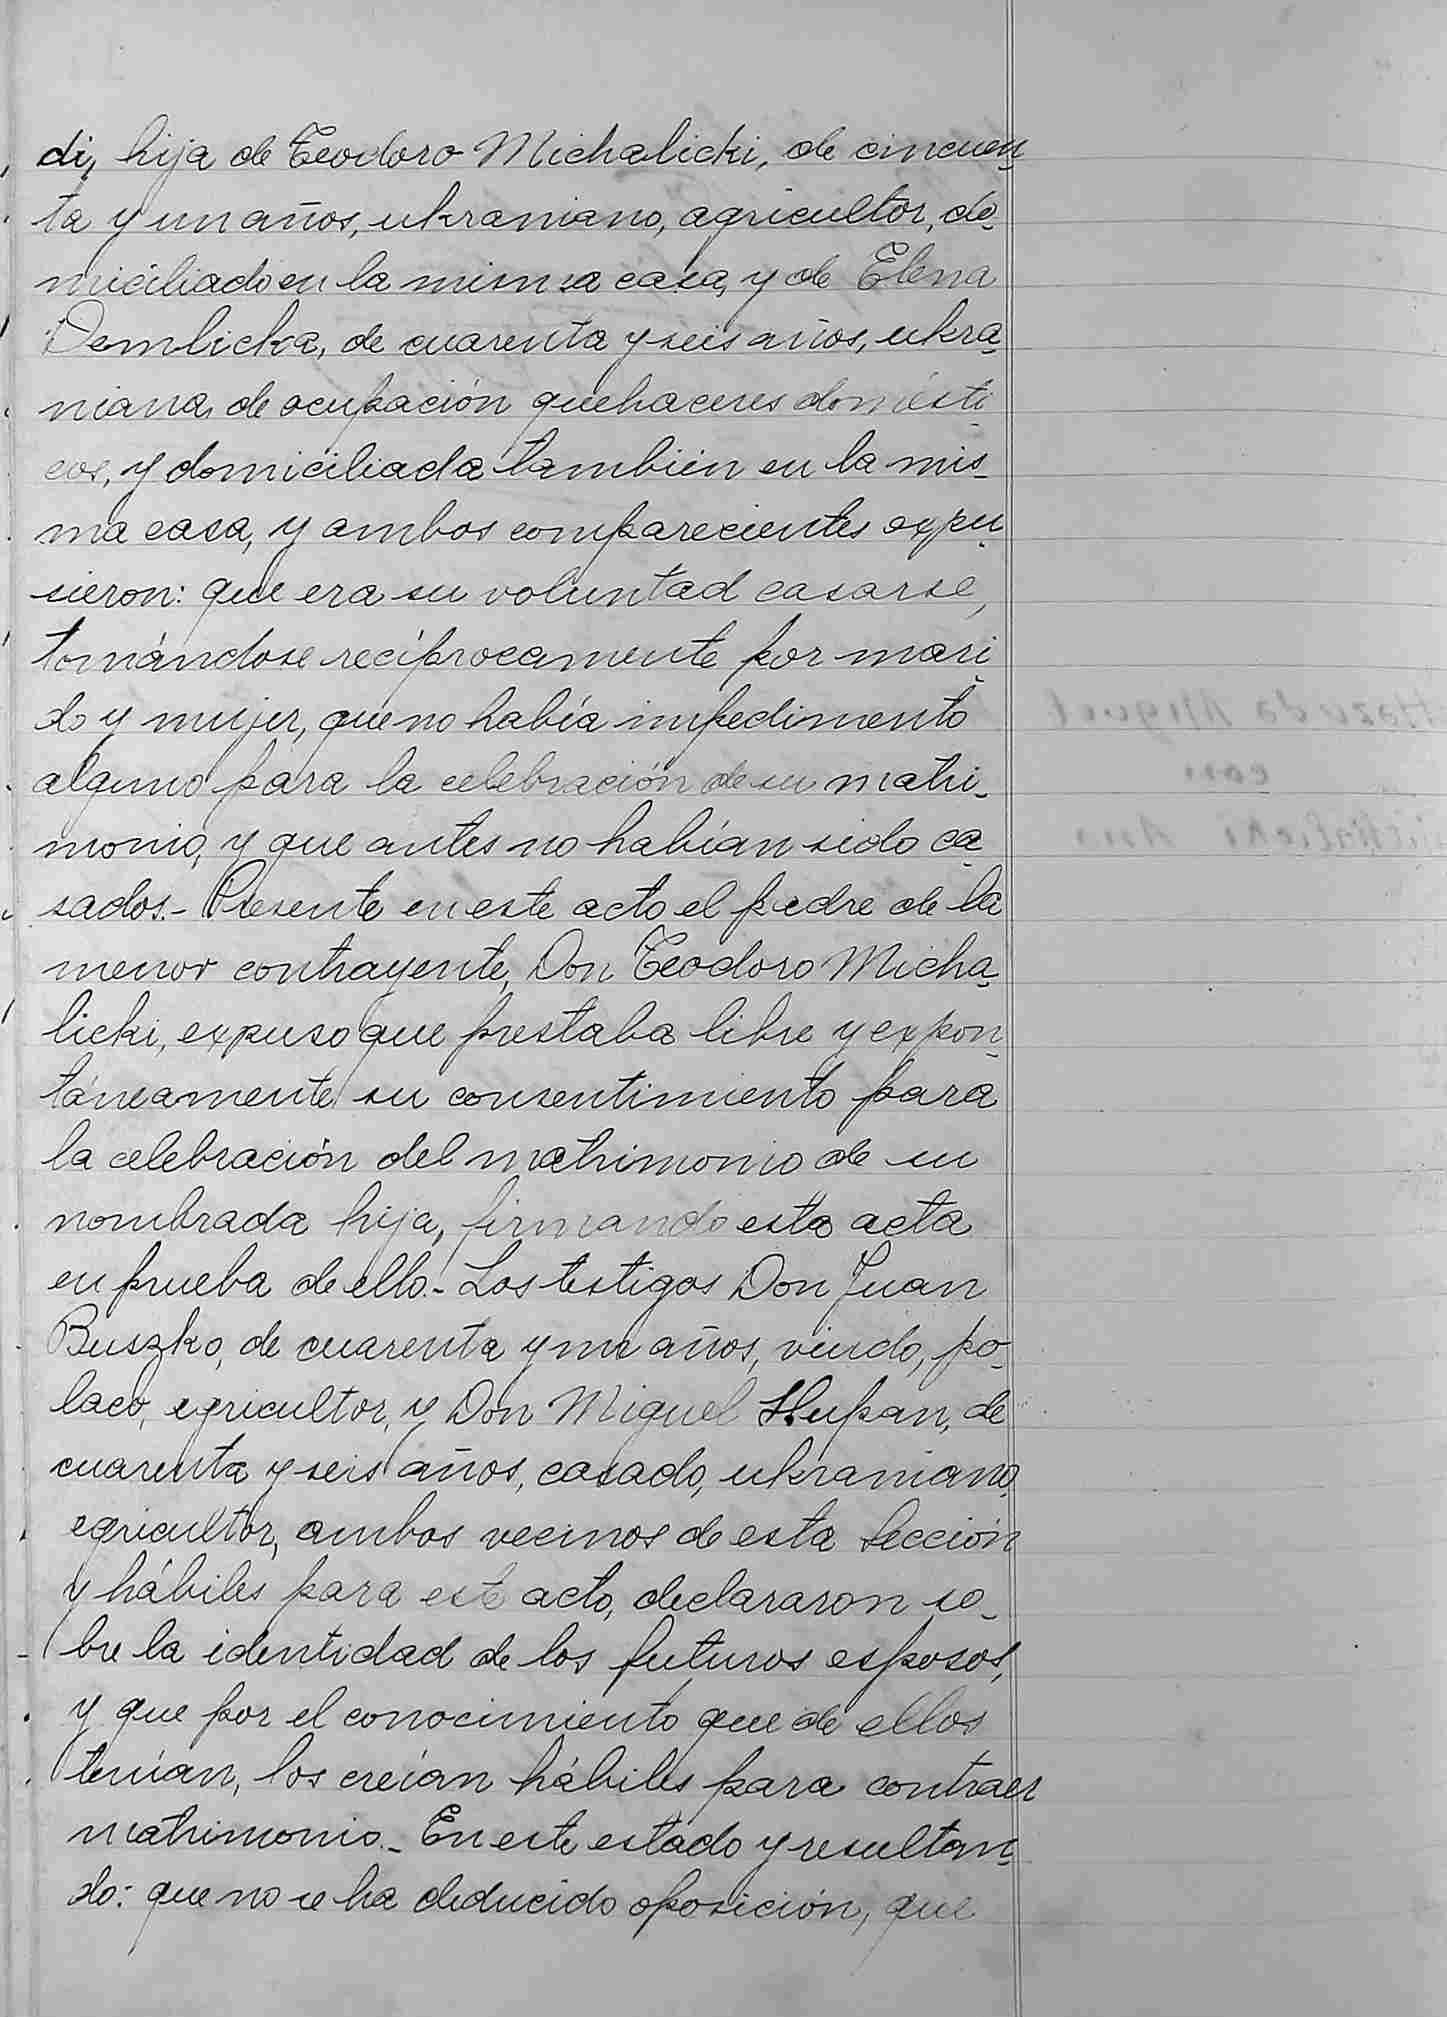 di, hija de Teodoro Michalicki, de cincuen
ta y un años, ukraniano, agricultor, do-
miciliado en la misma casa, y de Elena
Demlicka, de cuarenta y seis años, ukra-
niana, de ocupación quehaceres domésti
cos, y domiciliada también en la mis-
ma casa, y ambos comparecientes expu
sieron: que era su voluntad casarse,
tomándose recíprocamente por mari
do y mujer, que no había impedimento
alguno para la celebración de su matri-
monio, y que antes no habían sido ca
sados.- Presente en este acto el padre de la
menor contrayente, Don Teodoro Micha-
licki, expuso que prestaba libre y expon-
táneamente su consentimiento para
la celebración del matrimonio de su
nombrada hija, firmando esta acta
en prueba de ello.- Los testigos Don Juan
Buszko, de cuarenta y un años, viudo, po-
laco, agricultor, y Don Miguel Hupan, de
cuarenta y seis años, casado, ukraniano,
agricultor, ambos vecinos de esta Sección
y hábiles para este acto, declararon so-
bre la identidad de los futuros esposos,
y que por el conocimiento que de ellos
tenían, los creían hábiles para contraer
matrimonio.- En este estado y resultan-
do: que no se ha deducido oposición, que